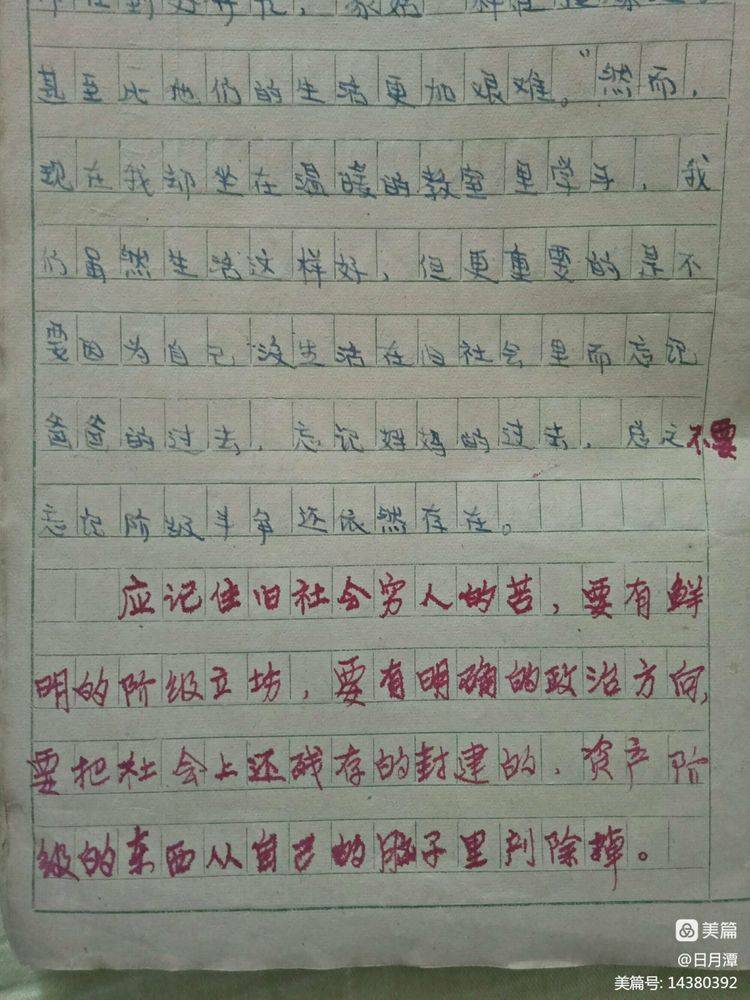 甚至比他们的生活更加艰难。”然而，
现在我却坐在温暖的教室里学手，我
们虽然生活这样好，但更重要的是不
要因为自己没生活在旧社会里而忘记
爸爸的过去，忘记妈妈的过去，不要
忘记阶级斗争还依然存在。
应记住旧社会穷人的苦，要有鲜
明的阶级立场，要有明确的政治方向，
要把社会上还残存的封建的、资产阶
级的东西从自己的脑子里剷除掉。
美篇
@日月潭
美篇号: 14380392